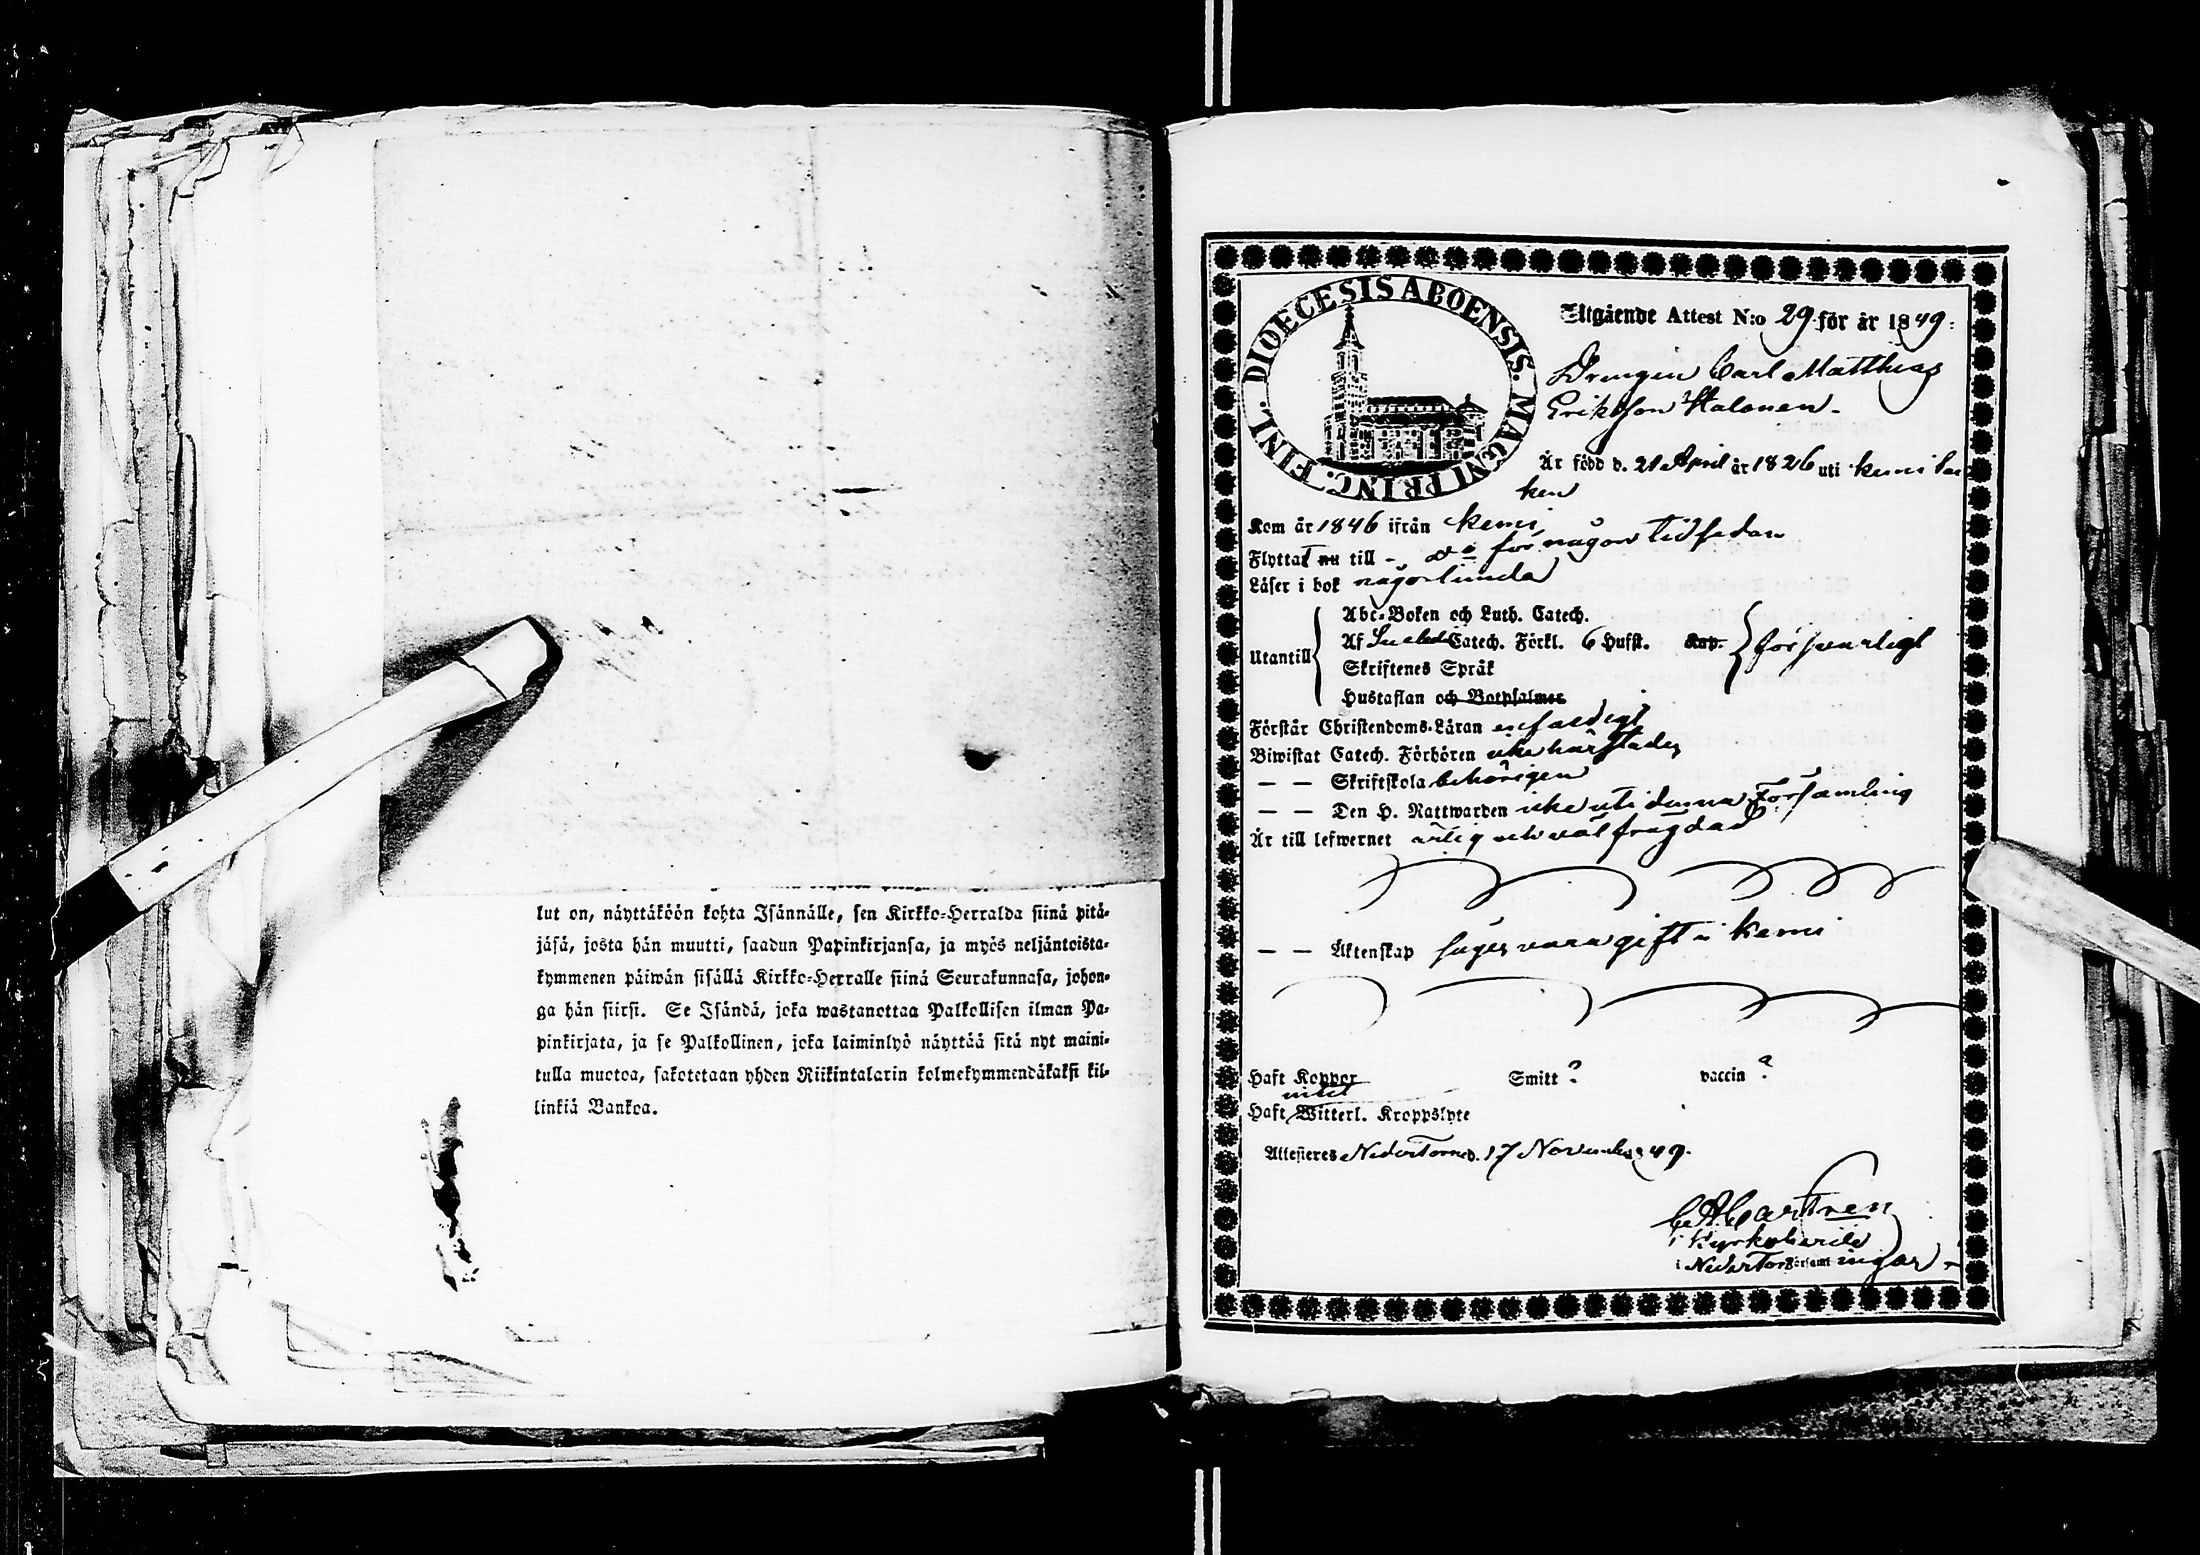 lut on, näyttäköön kohta Isännälle, sen Kirkko-Herralda siinä pitä-
jäsä, josta hän muutti, saadun Papinkirjansa, ja myös neljäntoista-
kymmenen päiwän sisällä Kirkko-Herralle siinä Seurakunnasa, johon-
ga hän siirsi. Se Isändä, joka wastanottaa Palkollisen ilman Pa-
pinkirjata, ja se Palkollinen, joka laiminlyö näyttää sitä nyt maini-
tulla muotoa, sakotetaan yhden Riikintalarin kolmekymmendäkaksi kil-
linkiä Bankoa.
DIOECESIS ABOENSIS. MAGNI PRINC. FINL.
Utgående Attest N:o 29 för år 1849.
Drengen Carl Matthias
Eriksson Halonen.
Är född d. 21 April år 1826 uti Kemi
Kom år 1846 ifrån Kemi,
Flyttat nu till - do för någon tid sedan
Läser i bok någorlunda
Abc-Boken och Luth. Catech.
Af Catech. Förkl. 6 Hufst. Kap. försvarligt
Utantill
Skriftenes Språk
Hustaflan och Botpsalmer
Förstår Christendoms-Läran enfaldigt
Biwistat Catech. Förhören icke härstädes
— — Skriftskola behörigen
— — Den H. Nattwarden icke uti denna Församling
Är till lefwernet ärlig och väl frägdad
— — Äktenskap säges vara gift i Kemi
Haft Koppor Smitt ? vaccin ?
intet
Haft Witterl. Kroppslyte
Attesteras NederTorneå d. 17 November 49.
C. A. Castrén
Kyrkoherde
i NederTorneå Församlingar